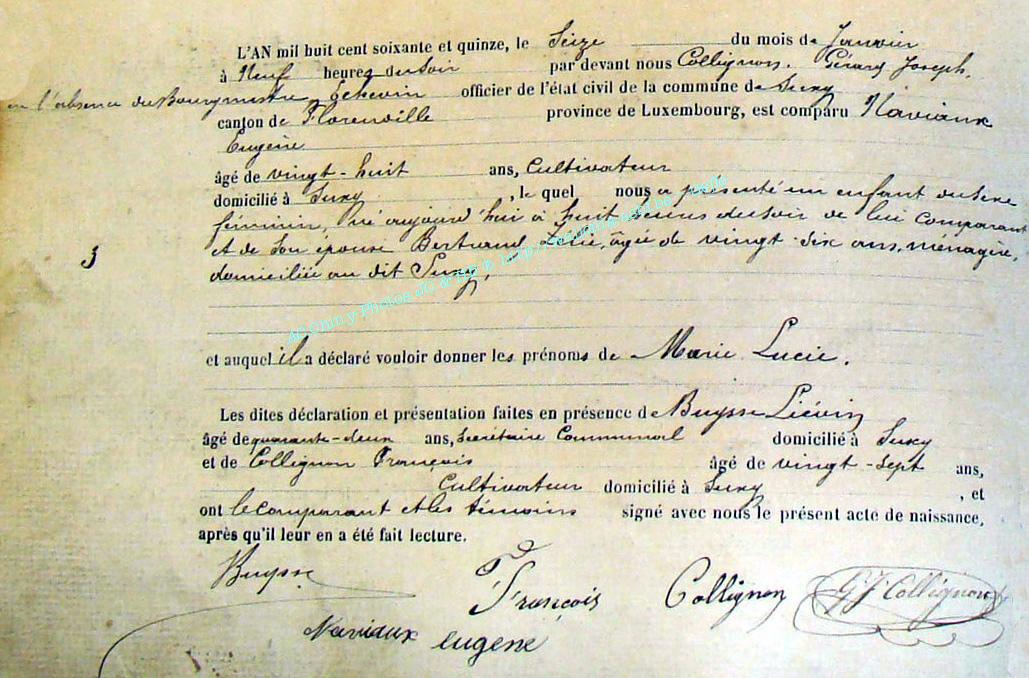 L'AN mil huit cent soixante et quinze, le Seize du mois de Janvier
à Neuf heures du Soir par devant nous Collignon, Gérard Joseph,
en l'absence du Bourgmestre, Echevin officier de l'état civil de la commune de Suxy
canton de Florenville province de Luxembourg, est comparu Naviaux
Eugène
âgé de vingt-huit ans, Cultivateur
domicilié à Suxy, le quel nous a présenté un enfant du sexe
féminin, né aujourd'hui à huit heures du soir de lui comparant
et de son épouse Bertrand, Zélie, âgée de vingt-six ans, ménagère,
3
domiciliée au dit Suxy,
AC Chiny Photos
et auquel il a déclaré vouloir donner les prénoms de Marie Lucie.
Les dites déclaration et présentation faites en présence de Buysse Liévin
âgé de quarante-deux ans, Secrétaire Communal domicilié à Suxy
et de Collignon François âgé de vingt-sept ans,
Cultivateur domicilié à Suxy, et
ont le comparant et les témoins signé avec nous le présent acte de naissance,
après qu'il leur en a été fait lecture.
Buysse François Collignon G J Collignon
Naviaux eugene